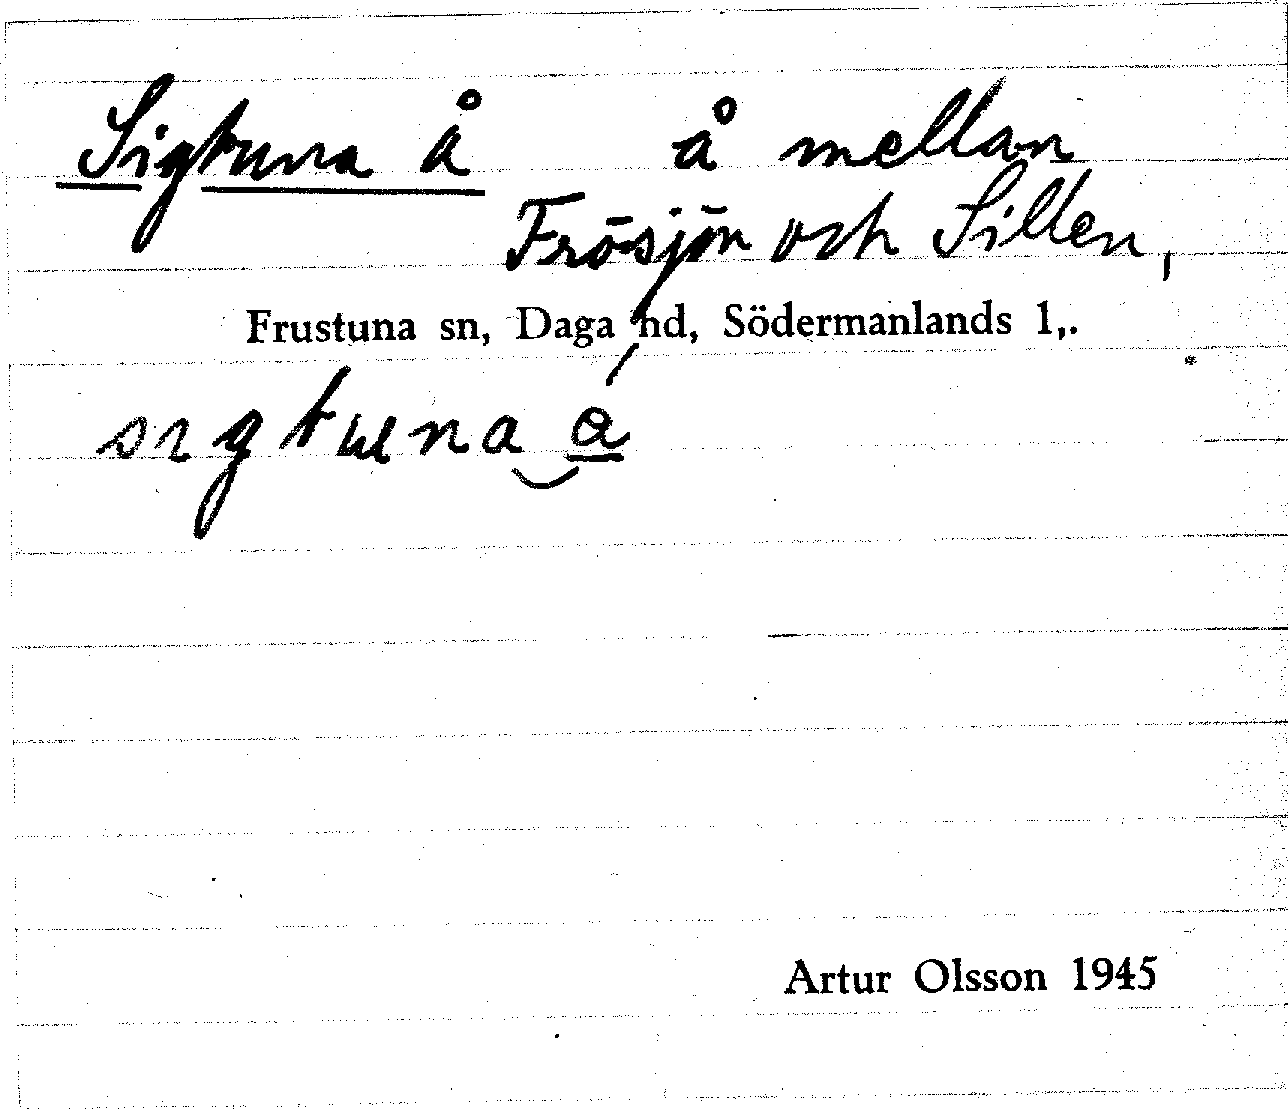 Sigtuna å å mellan
Frösjön och Sillen,
Frustuna sn, Daga hd, Södermanlands l,.
sıgtuna å
Artur Olsson 1945